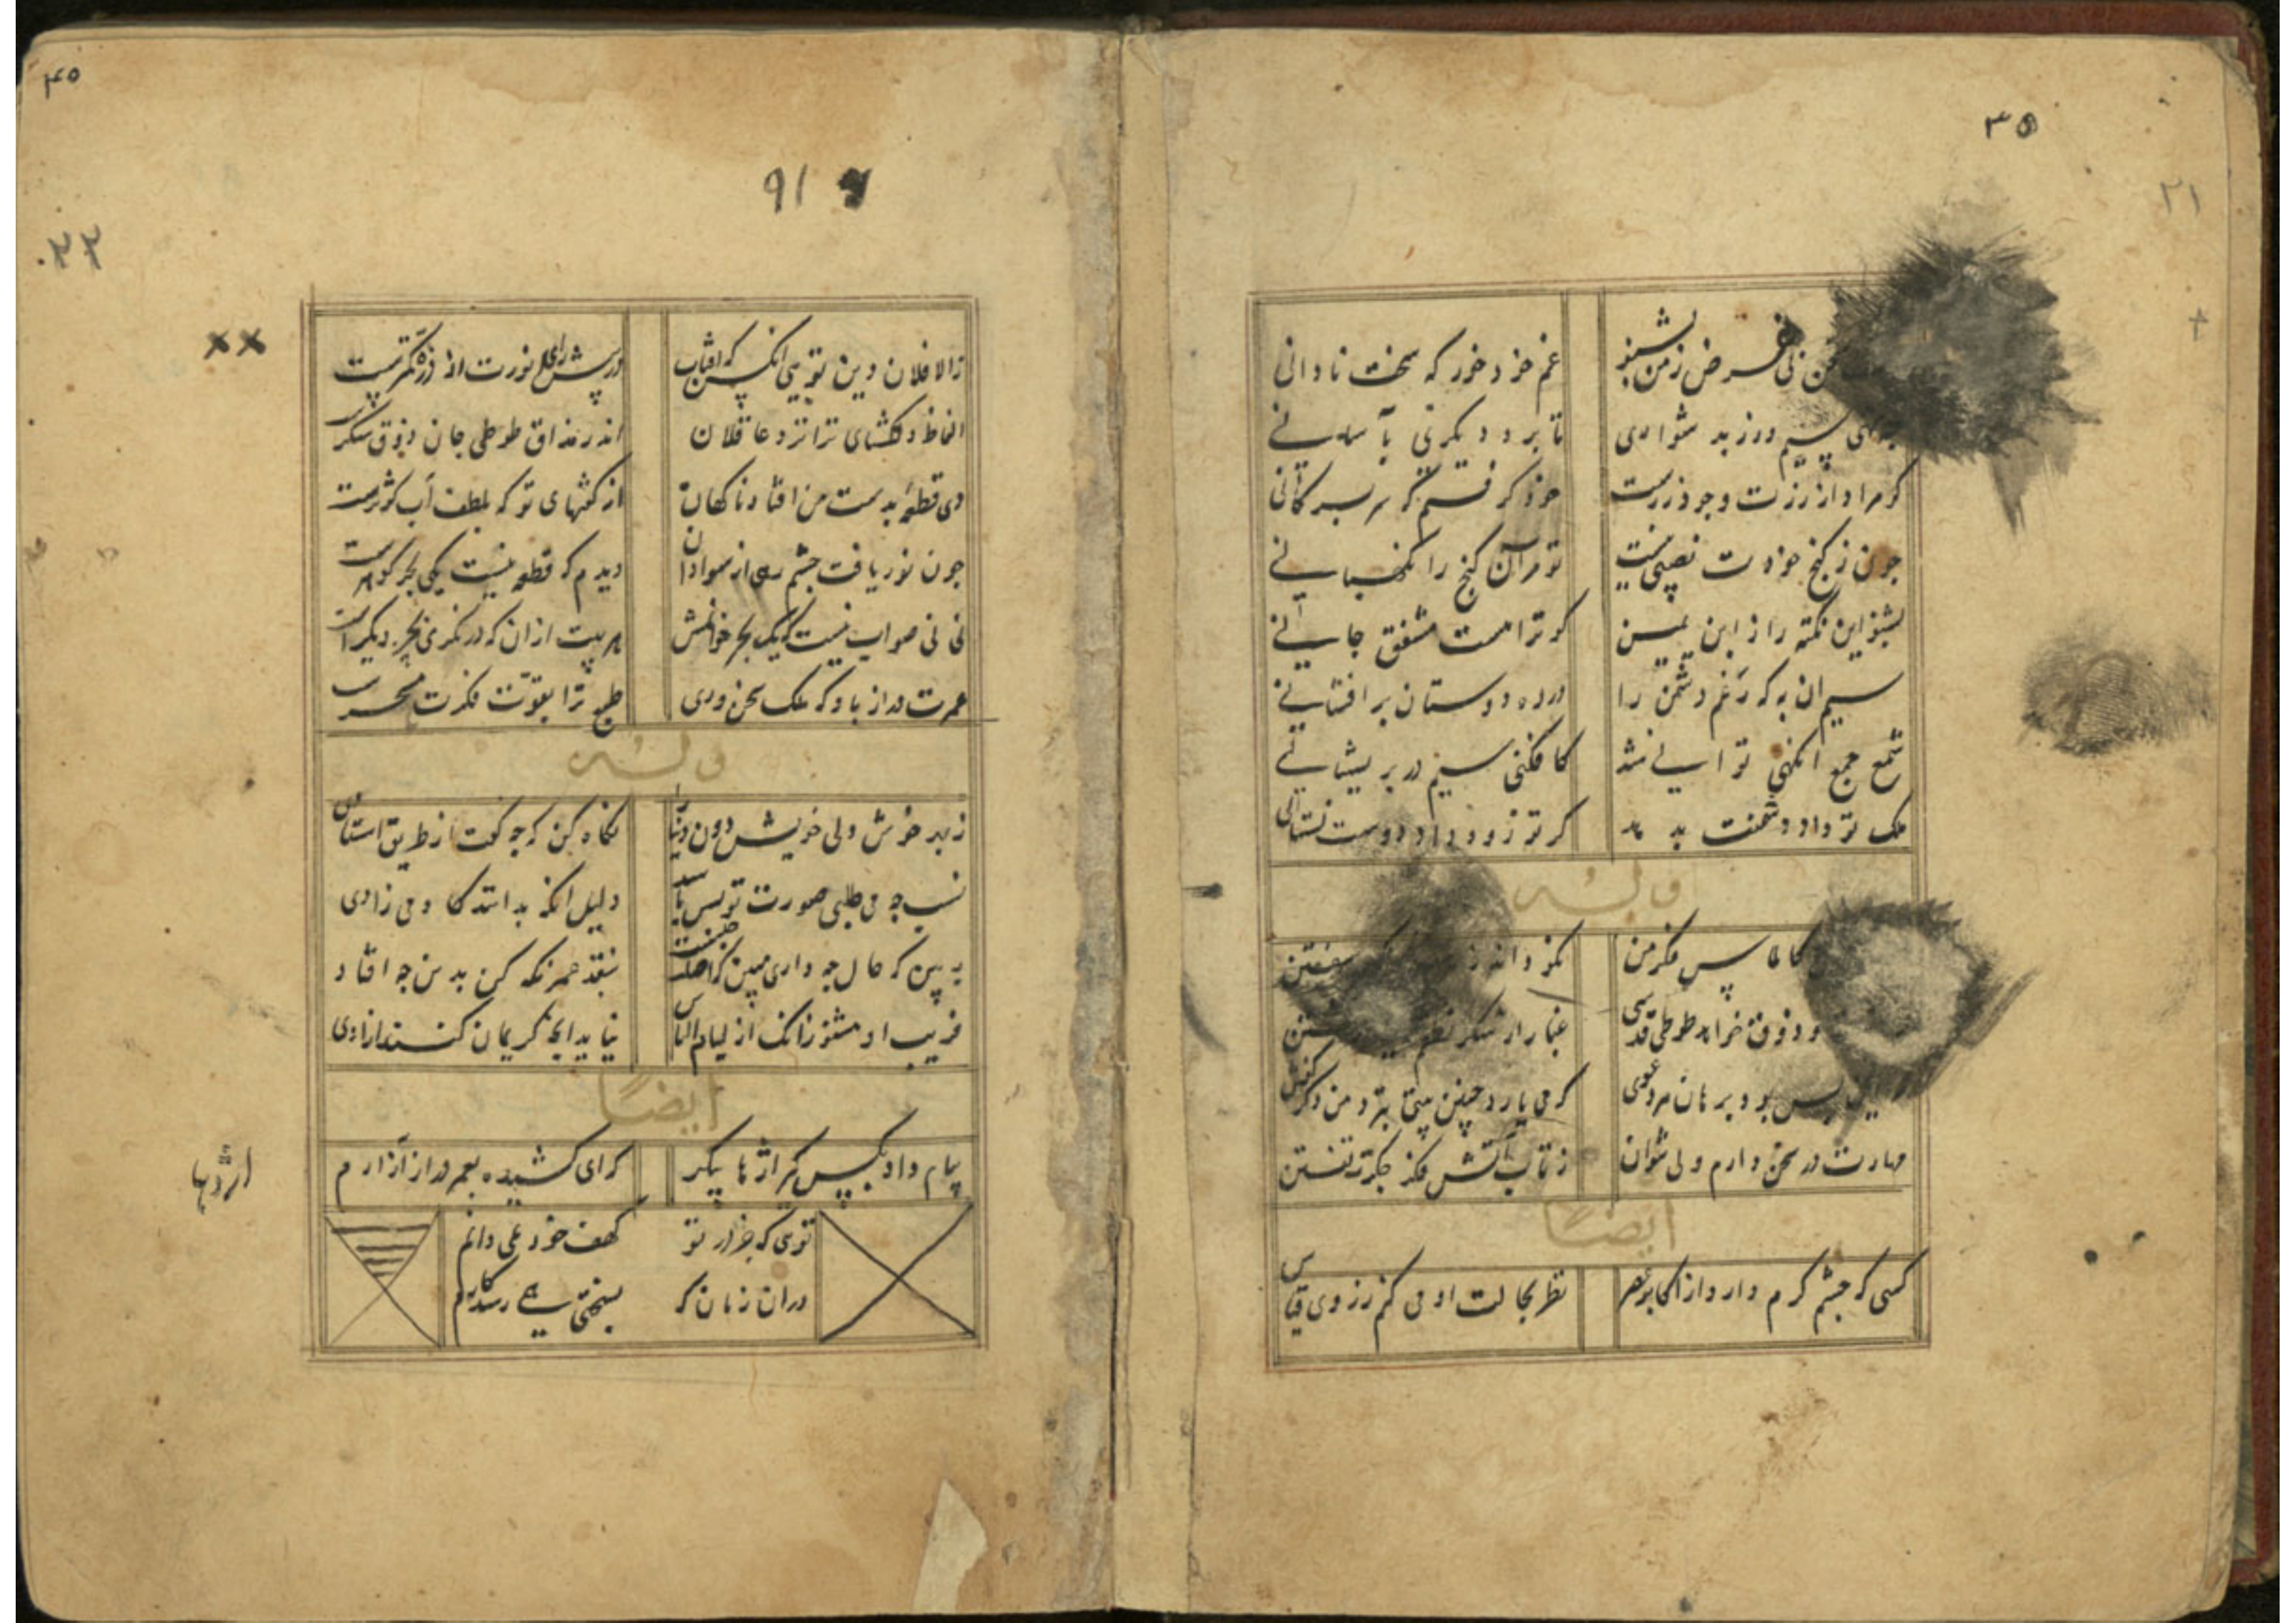 ۳۵
۲۱
سخن نی غرض ز من بشنو
غم خود خور که سخت نادانی
سیم دوز بد شواری
تا برد دیگری بآسانی
کر مراد از زرت وجود زرست
خود کرفتم که سر بسر کانی
چون ز کنج خودت نصیبی نیست
تو مر آن کنج را نکهبانی
بشنو این نکته را ز ابن یمین
کو ترا هست مشفق جانی
سیم ان به که رغم دشمن را
در ره دوستان بر افشانی
شمع جمع انکهی توانی شد
کافکنی سیم در پریشانی
ملک تو داد دشمنت بدهد
کر تو زو داد دوست نستانی
وله
کالماس فکر من
نکو داند
سفتن
و ذوق خواهد طوطی قدسی
غبار از شکر نظم
بس بود برهان مرد عوی
که می یارد چنین بیتی بجز من دکر کفتن
مهارت در سخن دارم ولی نتوان
ز تاب آتش فکر جکر تفتن
ایضاً
کسی که چشم کرم دارد از اکابر عصر
نظر بحالت او می کنم ز روی قیاس
۴۵
۹۱
۲۲
××
والا فلان دین تویی انکس که افتاب
در پیش رای انورت از ذره کمترست
الفاظ دلکشای ترا نزد عاقلان
اندر مذاق طوطی جان ذوق شکرست
دی قطعهٔ بدست من افتاد ناکهان
از کفتهای تو که بلطف آب کوثرست
چون نور یافت چشم رهی از سواد آن
دیدم که قطعه نیست یکی بحر کوهرست
نی نی صواب نیست که یک بحر خوانمش
هر بیت ازان که در نکری بحر دیکرست
عمرت دراز باد که ملک سخن وری
طبع ترا بقوت فکرت مسخرست
وله
ز پدر خوش ولی خویش دون دنیا را
نکاه کن که چه کفت از طریق استادی
نسب چه می طلبی صورت تو بس باشد
دلیل انکه بدانند کادمی زادی
به بین که حال چه داری مبین که اصلت چیست
بنقد همزنکه کن بدین چه افتاد
فریب او مشنو زانک از لیام الناس
نیاید انچه کریمان کنند از رادی
ایضاً
پیام داد بکیس که اژدها پیکر
که ای کشیده بعمر دراز آزارم
(اژدها)
توی که جز در تو
کهف خود نمی دانم
دران زمان که
بسختی همی رسد کارم